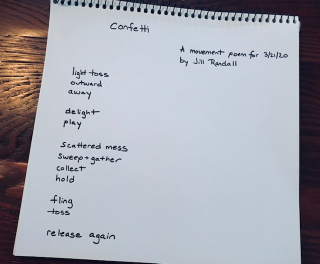 Confetti
A movement poem for 3/21/20
by Jill Randall
light toss
outward
away
delight
play
scattered mess
sweep + gather
collect
hold
fling
toss
release again